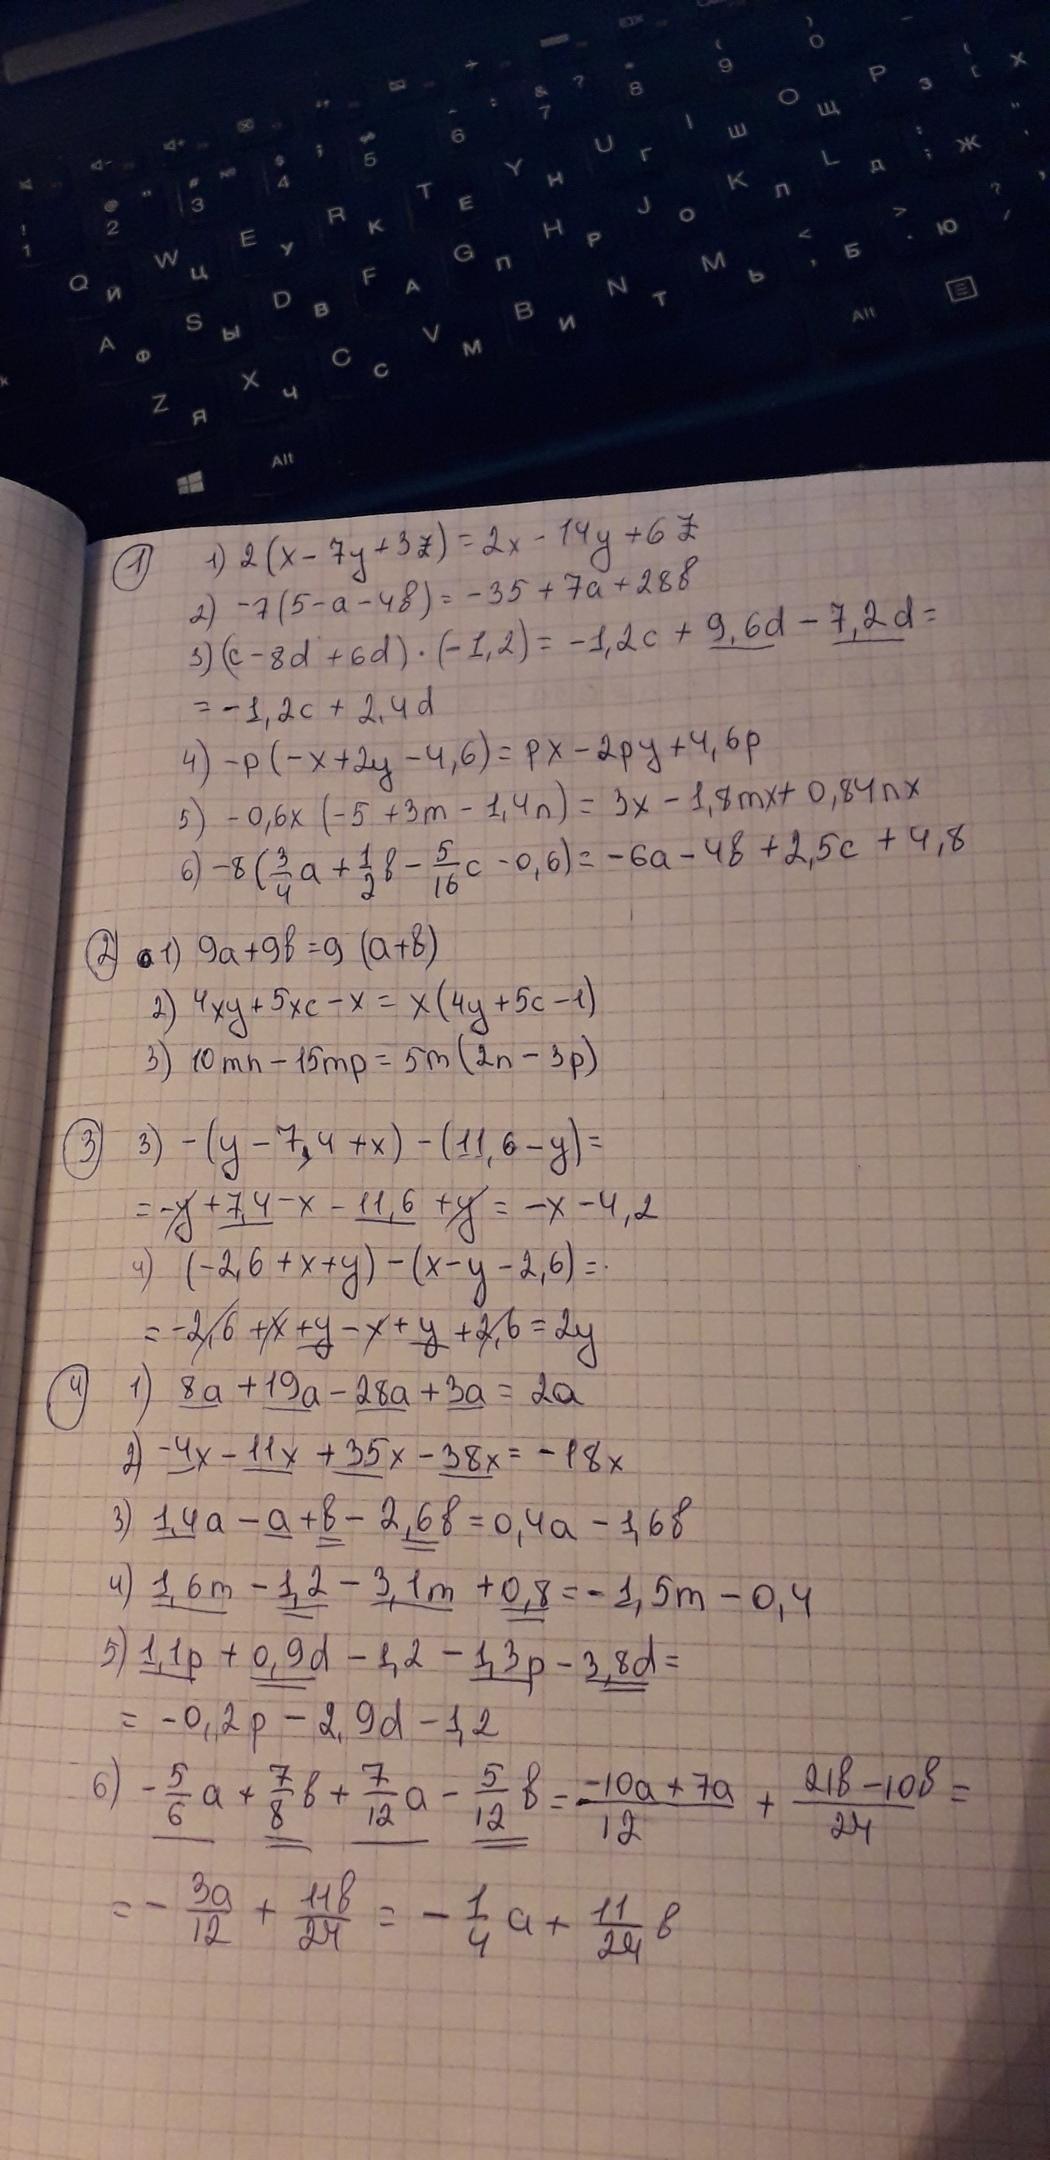 ! 1 @ 2 " # 3 № $ 4 ; % 5 ^ 6 : & 7 ? * 8 ( 9 ) 0
Q Й W Ц E У R К T Е Y Н U Г I Ш O Щ P З [ Х
A Ф S Ы D В F А G П H Р J О K Л L Д ; Ж
Z Я X Ч C С V М B И N Т M Ь < , Б > . Ю ? /
Alt Alt
1 1) 2(x - 7y + 3z) = 2x - 14y + 6z
2) -7(5-a-4в) = -35 + 7a + 28в
3) (c - 8d + 6d) · (-1,2) = -1,2c + 9,6d - 7,2d =
= -1,2c + 2,4d
4) -p(-x+2y-4,6) = px - 2py + 4,6p
5) -0,6x (-5 + 3m - 1,4n) = 3x - 1,8mx + 0,84nx
6) -8(3/4 a + 1/2 в - 5/16 c - 0,6) = -6a - 4в + 2,5c + 4,8
2 1) 9a+9в = 9 (a+в)
2) 4xy + 5xc - x = x(4y + 5c - 1)
3) 10mn - 15mp = 5m(2n - 3p)
3 3) -(y - 7,4 + x) - (11,6 - y) =
= -y + 7,4 - x - 11,6 + y = -x - 4,2
4) (-2,6 + x + y) - (x - y - 2,6) =
= -2,6 + x + y - x + y + 2,6 = 2y
4 1) 8a + 19a - 28a + 3a = 2a
2) -4x - 11x + 35x - 38x = -18x
3) 1,4a - a + в - 2,6в = 0,4a - 1,6в
4) 1,6m - 1,2 - 3,1m + 0,8 = -1,5m - 0,4
5) 1,1p + 0,9d - 1,2 - 1,3p - 3,8d =
= -0,2p - 2,9d - 1,2
6) -5/6 a + 7/8 в + 7/12 a - 5/12 в = -10a + 7a/12 + 21в - 10в/24 =
= - 3a/12 + 11в/24 = - 1/4 a + 11/24 в